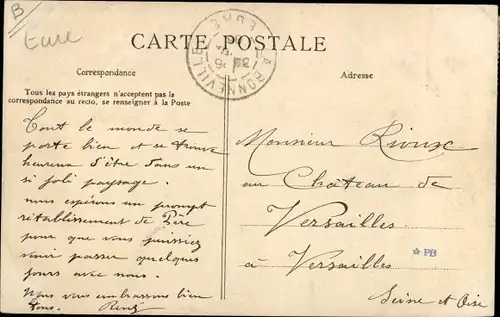 B
Eure
CARTE POSTALE
LA BONNEVILLE
EURE
Correspondance
Adresse
Tous les pays étrangers n'acceptent pas la
correspondance au recto, se renseigner à la Poste
Tout le monde se
porte bien et se trouve
heureux d'être dans un
si joli paysage.
nous espérons un prompt
rétablissement de Père
pour que vous puissiez
venir passer quelques
jours avec nous.
Nous vous embrassons bien
tous. René
Monsieur Rioux
au Château de
Versailles
à Versailles
Seine et Oise
PB